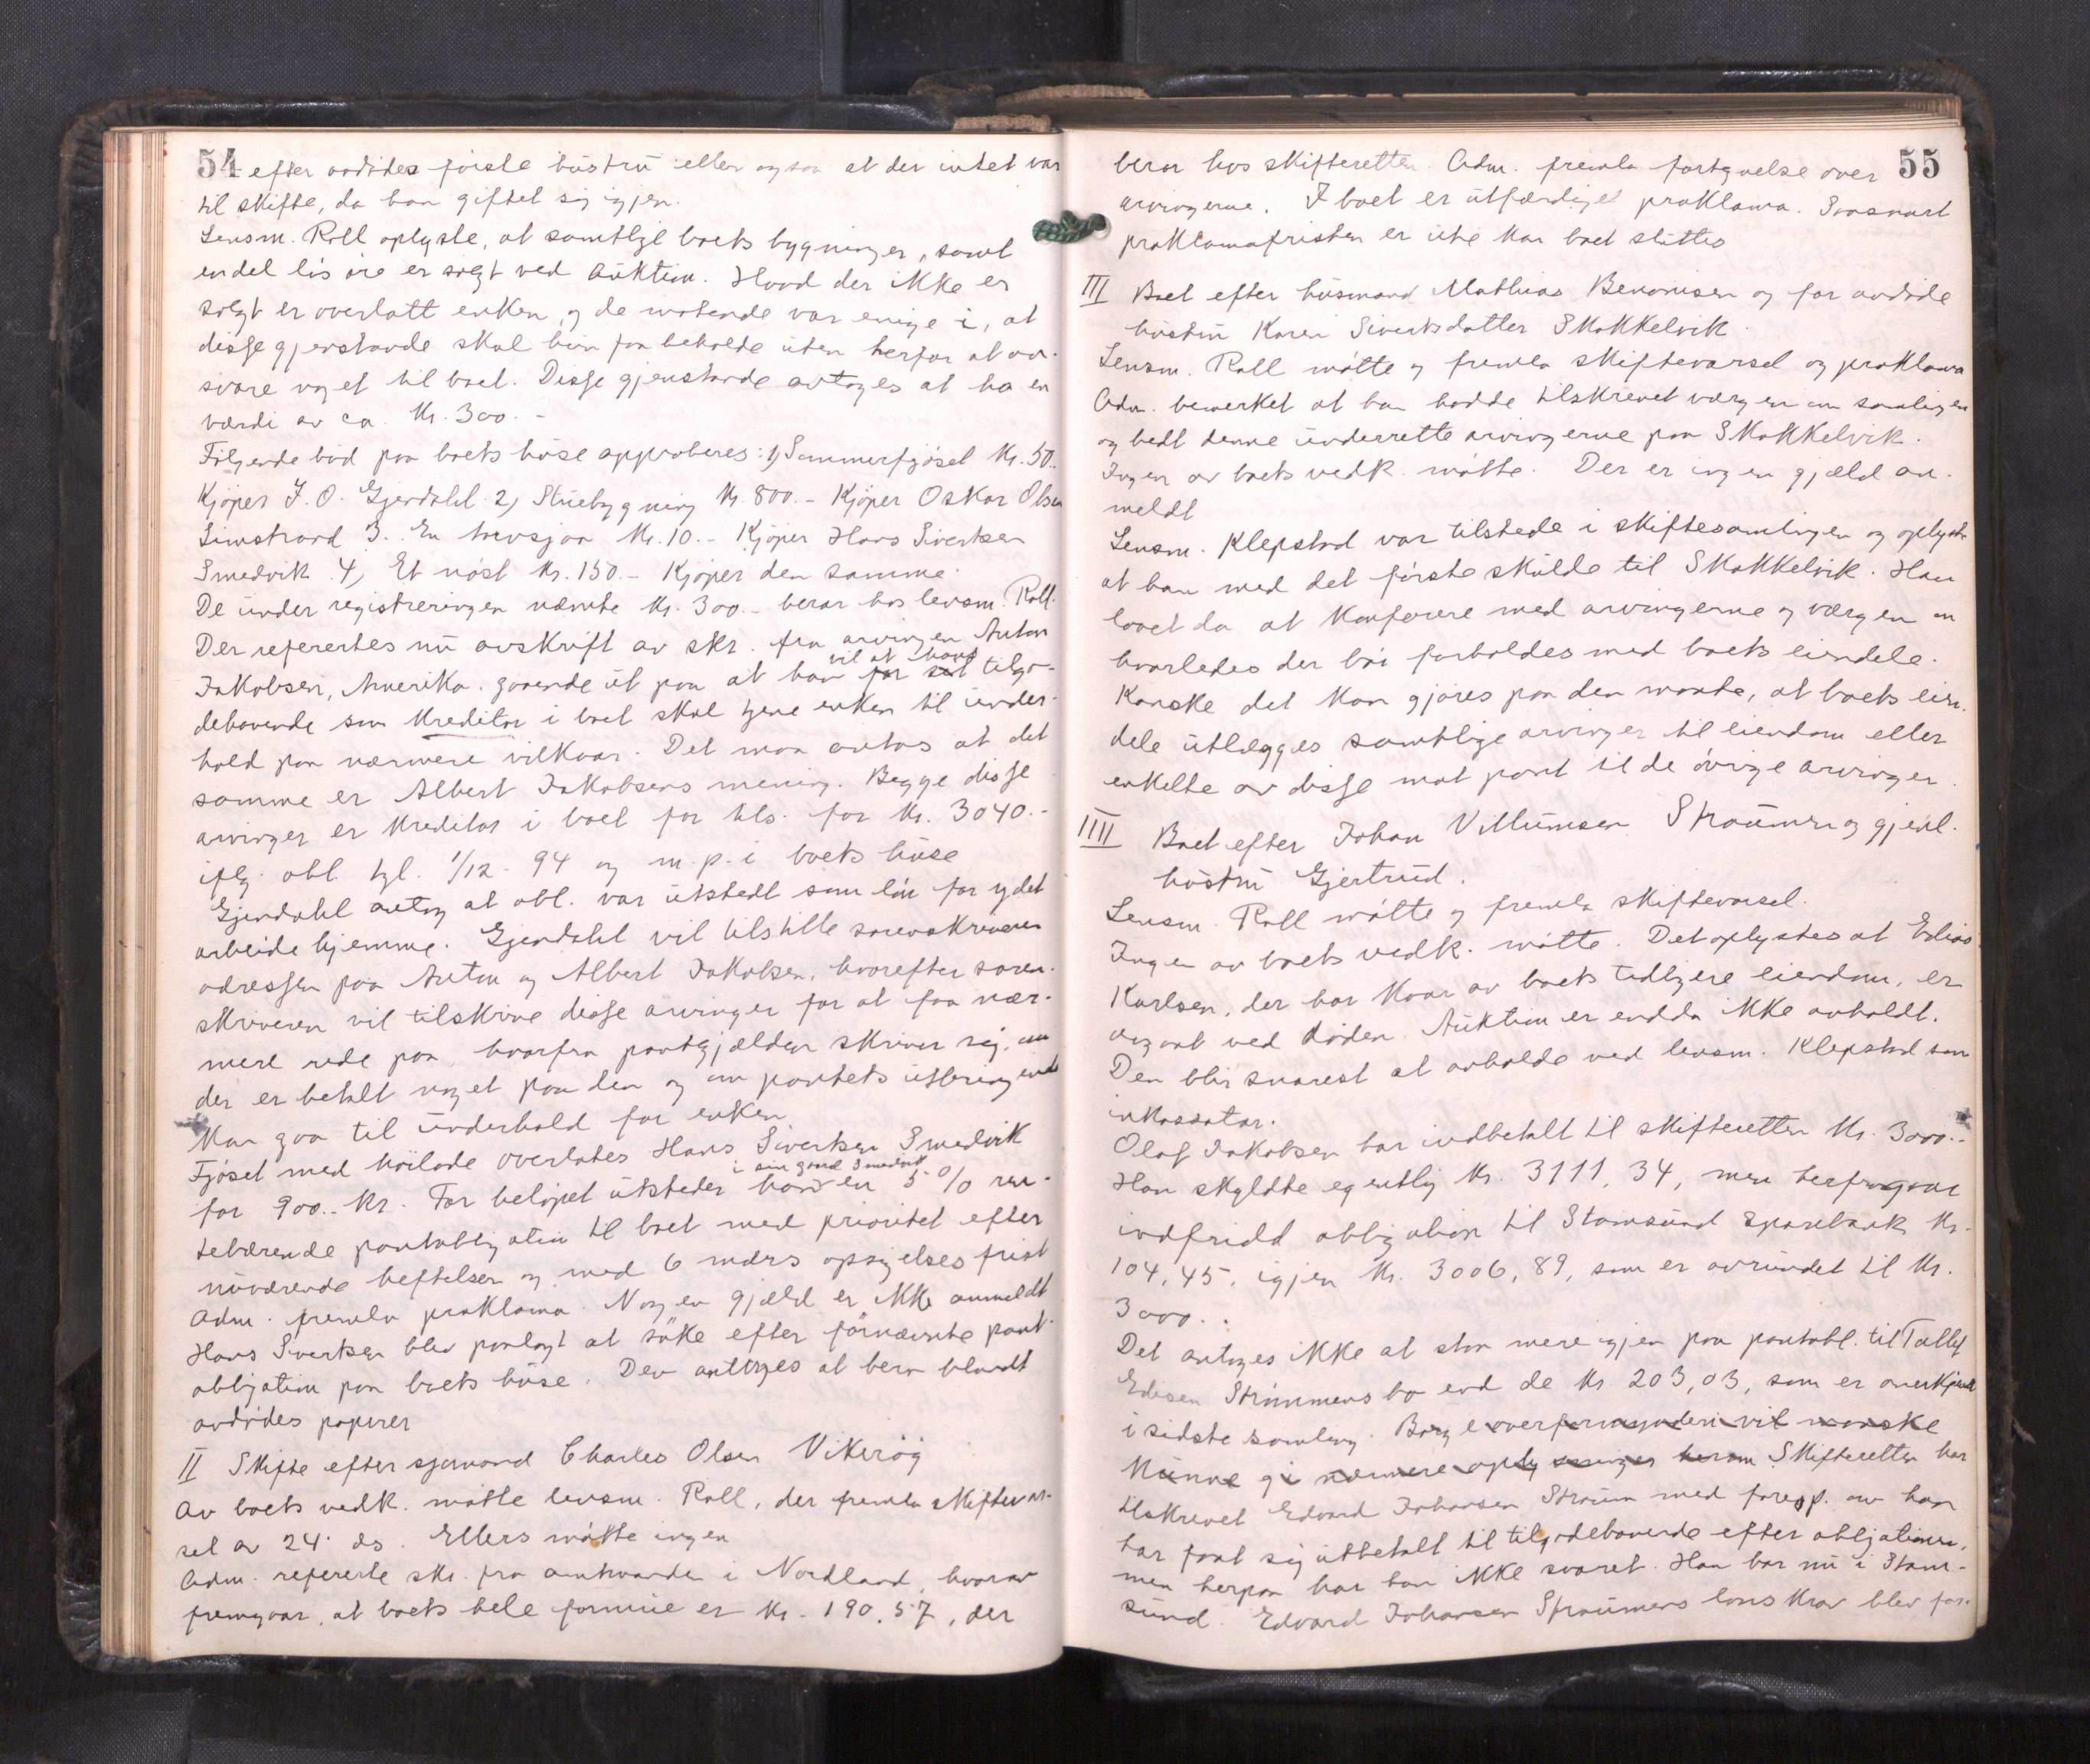 54
efter avdødes første hustru eller ogsaa at der intet var
til skifte, da han giftet sig igjen.
Lensm. Roll oplyste, at samtlige boets bygninger, samt
endel løsøre er solgt ved auktion. Hvad der ikke er
solgt er overlatt enken, og de møtende var enige i, at
disse gjenstande skal hun faa beholde uten herfor at an-
svare noget til boet. Disse gjenstande antages at ha en
værdi av ca. Kr. 300.-
Følgende bud paa boets huse approberes: 1) Sommerfjøset Kr. 50.-
Kjøper J. O. Gjerdahl 2) Stuebygning Kr. 800.- Kjøper Oskar Olsen
Limstrand 3. En torvsjaa Kr. 10.- Kjøper Hans Sivertsen
Smedvik 4) Et nøst Kr. 150.- Kjøper den samme.
De under registreringen nævnte Kr. 300.- beror hos lensm. Roll.
Der refereres nu avskrift av skr. fra arvingen Anton
Jakobsen, Amerika. gaaende ut paa at han vil at hans tilgo-
dehavende som kreditor i boet skal tjene enken til under-
hold paa nærmere vilkaar. Det maa antas at det
samme er Albert Jakobsens mening. Begge disse
arvinger er kreditor i boet for tils. for Kr. 3040.-
iflg. obl. tgl. 1/12-94 og m. p. i boets huse
Gjerdahl antog at obl. var utstedt som løn for ydet
arbeide hjemme. Gjerdahl vil tilstille sorenskriveren
adressen paa Anton og Albert Jakobsen, hvorefter soren-
skriveren vil tilskrive disse arvinger for at faa nær-
mere rede paa, hvorfra pantgjælden skriver sig, om
der er betalt noget paa den og om pantets utbringende
kan gaa til underhold for enken
Fjøset med høilade overlates Hans Sivertsen Smedvik
for 900.- kr. For beløpet utsteder han i sin gaard Smedvik en 5 % ren-
tebærende pantobligation til boet med prioritet efter
nuværende heftelser og med 6 mdrs opsigelsesfrist
Adm. fremla proklama. Nogen gjæld er ikke anmeldt
Hans Sivertsen blev paalagt at søke efter førnævnte pant-
obligation paa boets huse. Den antoges at bero blandt
avdødes papirer
II Skifte efter sjømand Charles Olsen Vikerøg
Av boets vedk. møtte lensm. Roll, der fremla skiftevar-
sel av 24. ds. Ellers møtte ingen
Adm. refererte skr. fra amtmanden i Nordland, hvorav
fremgaar, at boets hele formue er Kr. 190,57, der
55
beror hos skifteretten. Adm. fremla fortegnelse over
arvingerne. I boet er utfærdiget proklama. Saasnart
proklamafristen er ute kan boet sluttes
III Boet efter husmand Mathias Benonisen og før avdøde
hustru Karen Sivertsdatter Skokkelvik.
Lensm. Roll møtte og fremla skiftevarsel og proklama
Adm. bemerket at han hadde tilskrevet værgen om samlingen
og bedt denne underrette arvingerne paa Skokkelvik.
Ingen av boets vedk. møtte. Der er ingen gjæld an-
meldt
Lensm. Klepstad var tilstede i skiftesamlingen og oplyste
at han med det første skulde til Skokkelvik. Han
lovet da at konferere med arvingerne og værgen om
hvorledes der bør forholdes med boets eiendele.
Kanske det kan gjøres paa den maate, at boets eien-
dele utlægges samtlige arvinger til eiendom eller
enkelte av disse mot pant til de øvrige arvinger.
IIII Boet efter Johan Villumsen Straumen og gjenl.
hustru Gjertrud.
Lensm. Roll møtte og fremla skiftevarsel.
Ingen av boets vedk. møtte. Det oplystes at Edias
Karlsen, der har kaar av boets tidligere eiendom, er
avgaat ved døden. Auktion er endda ikke avholdt.
Den blir snarest at avholde ved lensm. Klepstad som
inkassator.
Olaf Jakobsen har indbetalt til skifteretten Kr. 3000.-
Han skyldte egentlig Kr. 3111,34, men herfra gaar
indfridd obligation til Stamsund Sparebank Kr.
104,45, igjen Kr. 3006,89, som er avrundet til Kr.
3000.-
Det antages ikke at staa mere igjen paa pantobl. til Tollef
Edisen Strømmens bo end de Kr. 203,03, som er anerkjendt
i sidste samling. Borge overformynderi vil maaske
kunne gi nærmere oplysninger herom Skifteretten har
tilskrevet Edvard Johansen Straum med foresp. om han
har faat sig utbetalt til tilgodehavende efter obligationen,
men herpaa har han ikke svaret. Han bor nu i Stam-
sund. Edvard Johansen Straumens lønskrav blev for-